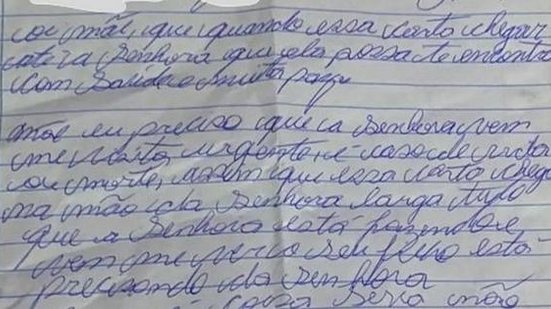 oi mãe, que quando essa carta chegar
até a senhora que ela possa te encontra
com saúde e muita paz
mãe eu preciso que a senhora vem
me visita urgente, é caso de vida
ou morte, assim que essa carta chega
na mão da senhora larga tudo
que a senhora está fazendo e
vem me ver o seu filho está
precisando da senhora
é coisa seria mãe